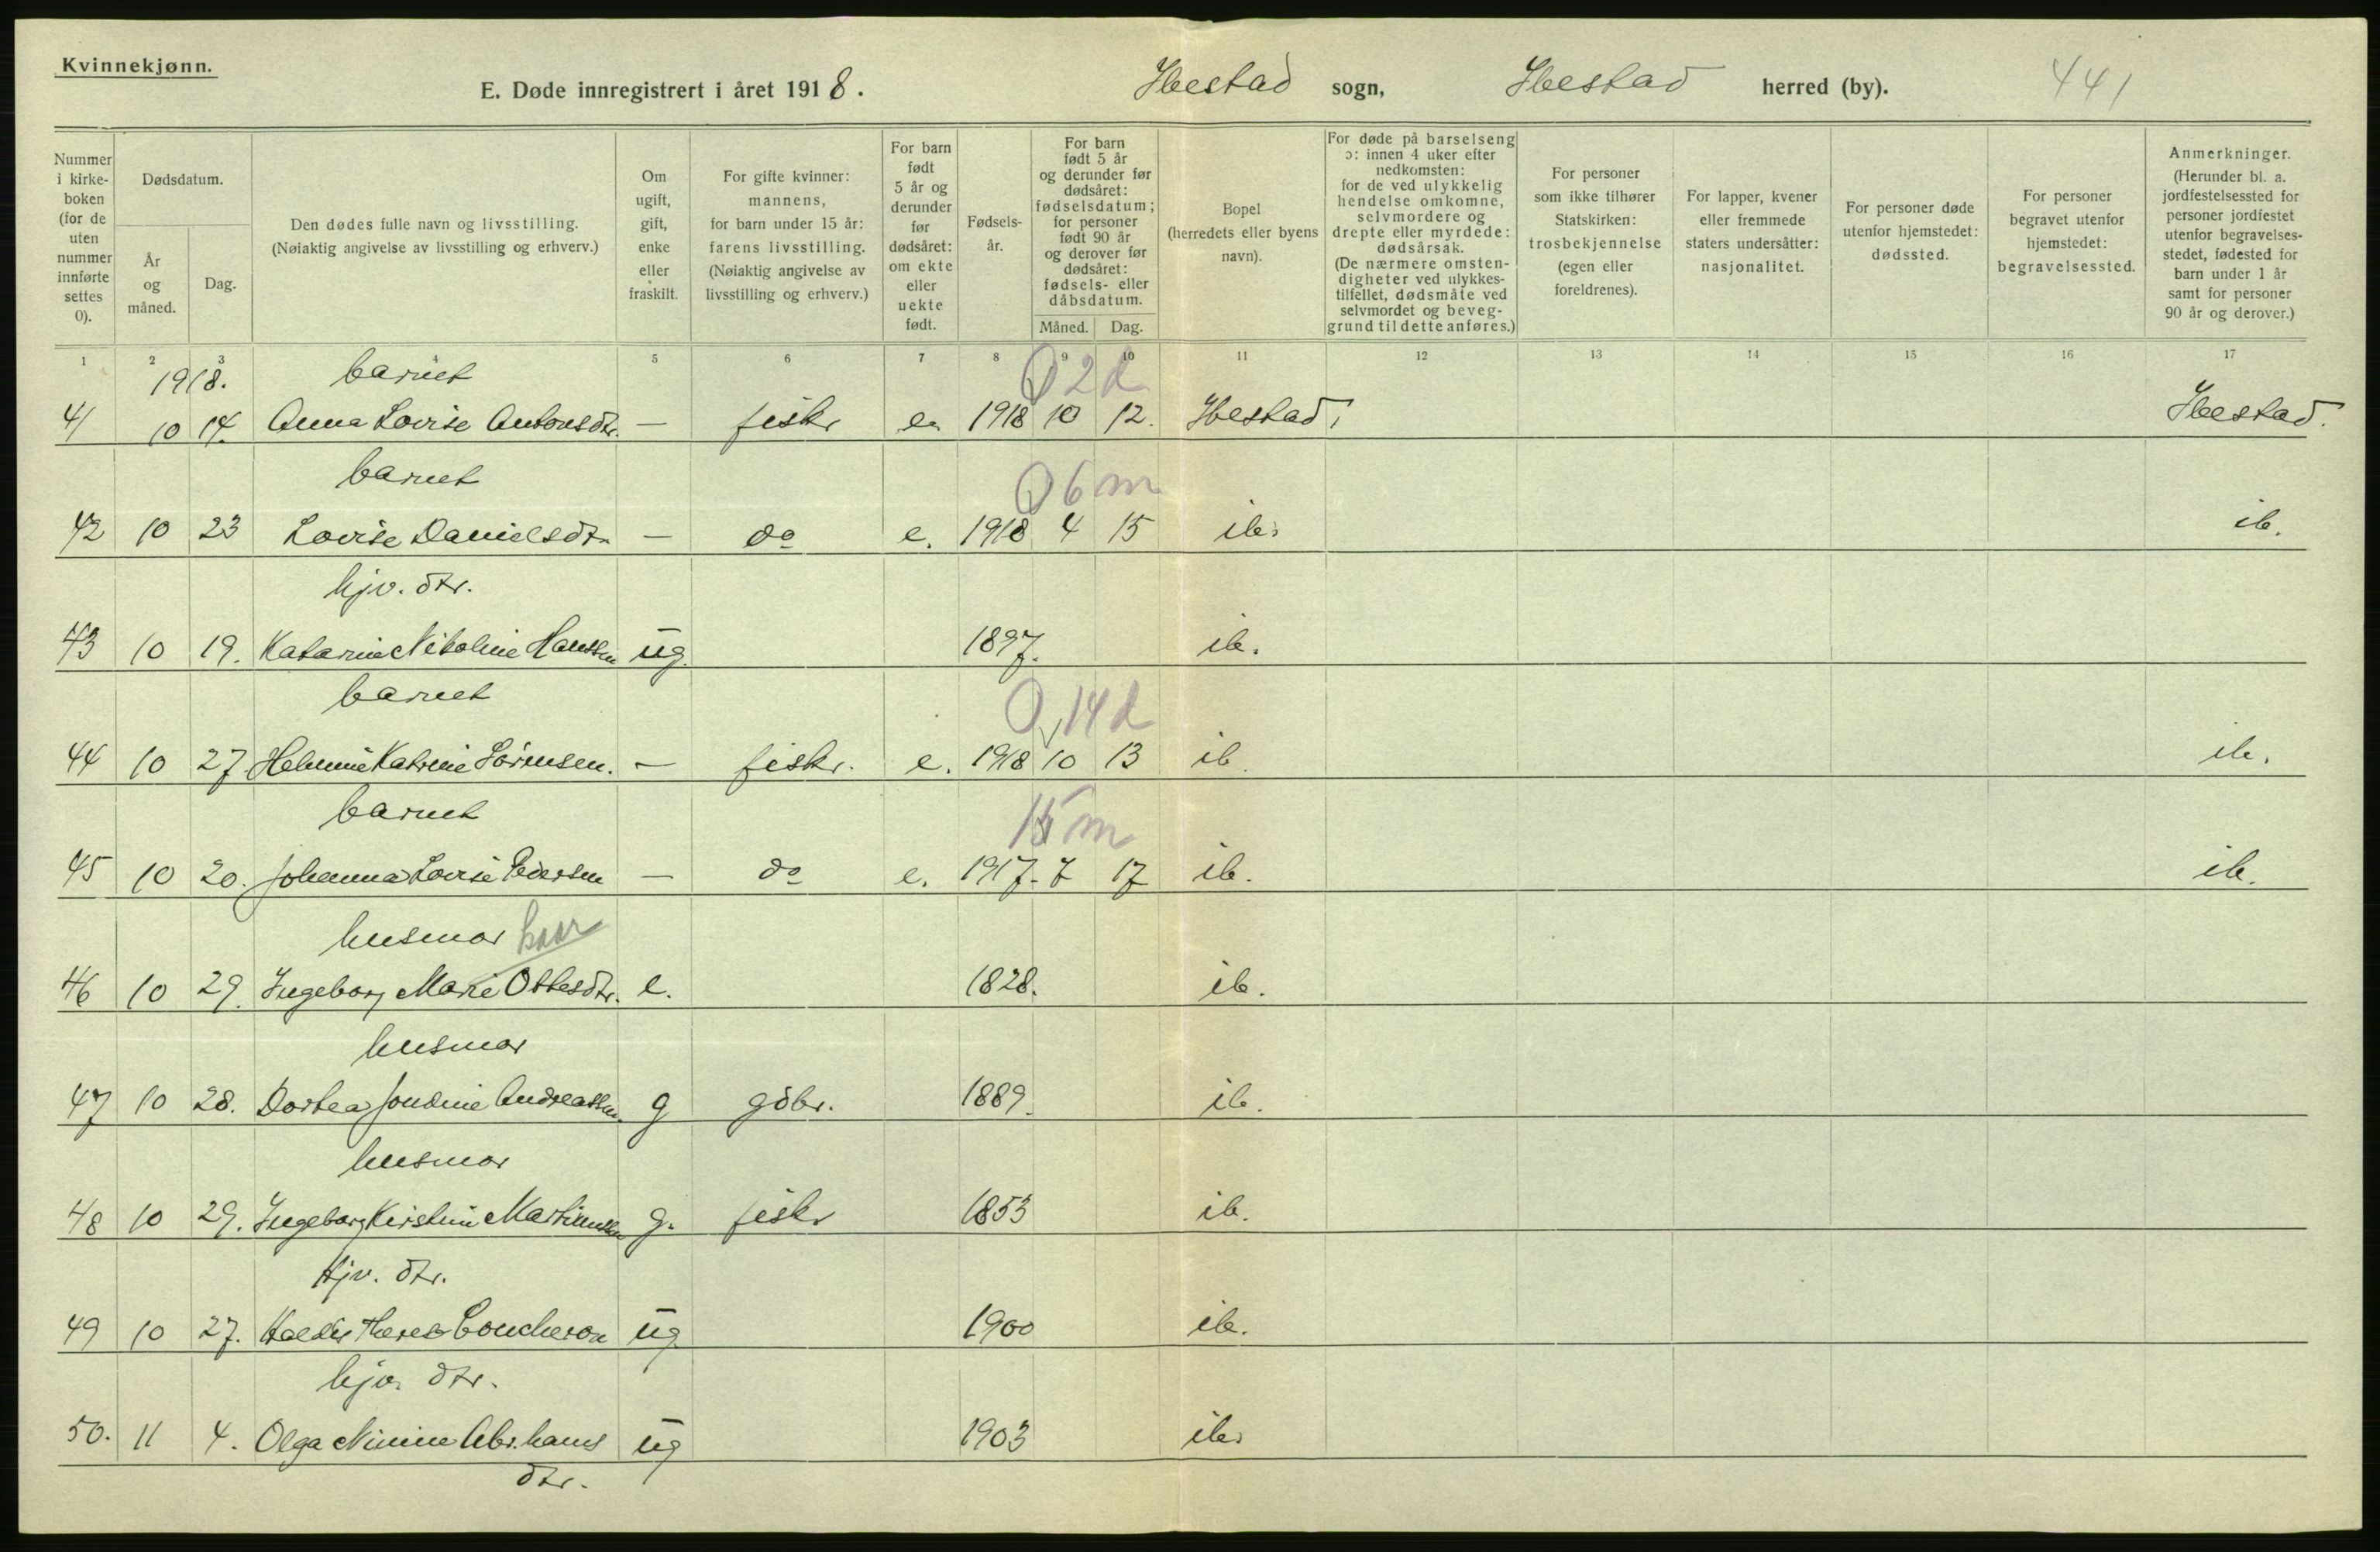 Kvinnekjønn.
E. Døde innregistrert i året 1918. Ibestad sogn, Ibestad herred (by). 441
Nummer i kirke-boken (for de uten nummer innførte settes 0).
Dødsdatum.
År og måned.
Dag.
Den dødes fulle navn og livsstilling.
(Nøiaktig angivelse av livsstilling og erhverv.)
Om ugift, gift, enke eller fraskilt.
For gifte kvinner: mannens, for barn under 15 år: farens livsstilling. (Nøiaktig angivelse av livsstilling og erhverv.)
For barn født 5 år og derunder før dødsåret: om ekte eller uekte født.
Fødsels-år.
For barn født 5 år og derunder før dødsåret: fødselsdatum; for personer født 90 år og derover før dødsåret: fødsels- eller dåbsdatum.
Måned. Dag.
Bopel (herredets eller byens navn).
For døde på barselseng ɔ: innen 4 uker efter nedkomsten: for de ved ulykkelig hendelse omkomne, selvmordere og drepte eller myrdede: dødsårsak. (De nærmere omsten-digheter ved ulykkes-tilfellet, dødsmåte ved selvmordet og beveg-grund til dette anføres.)
For personer som ikke tilhører Statskirken: trosbekjennelse (egen eller foreldrenes).
For lapper, kvener eller fremmede staters undersåtter: nasjonalitet.
For personer døde utenfor hjemstedet: dødssted.
For personer begravet utenfor hjemstedet: begravelsessted.
Anmerkninger. (Herunder bl. a. jordfestelsessted for personer jordfestet utenfor begravelses-stedet, fødested for barn under 1 år samt for personer 90 år og derover.)
1 2 3 4 5 6 7 8 9 10 11 12 13 14 15 16 17
1918. barnet 0 2 d
41 10 14. Anna Lovise Antonsdtr. — fiskr e. 1918 10 12. Ibestad. Ibestad.
barnet 0 6 m
42 10 23 Lovise Danielsdtr — do e. 1918 4 15 ib. ib.
hjv. dtr.
43 10 19. Katarine Nikoline Hanssen ug. 1897. ib.
barnet 0 14 d
44 10 27 Helmine Katrine Sörensen. — fiskr. e. 1918 10 13 ib. ib.
barnet 15 m
45 10 20. Johanna Lovise Pedersen — do e. 1917. 7 17 ib. ib.
husmor kaar
46 10 29. Ingeborg Marie Ottesdtr. e. 1828. ib.
husmor
47 10 28. Dortea Jondine Andreassen. g gdbr. 1889. ib.
husmor
48 10 29. Ingeborg Kirstine Martinussen g. fiskr 1853 ib.
Hjv. dtr.
49 10 27. Haldis Theres Coucheron ug. 1900 ib.
hjv. dtr.
50. 11 4. Olga Nimine Abr.hams ug 1903 ib.
dtr.